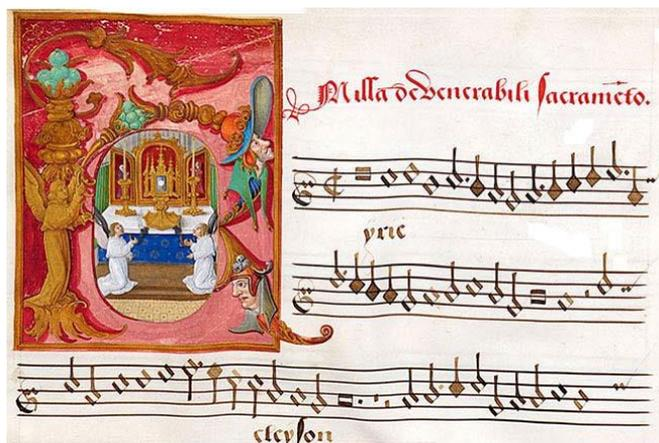 Missa de Venerabili sacrame̅to.
yrie
eleyson